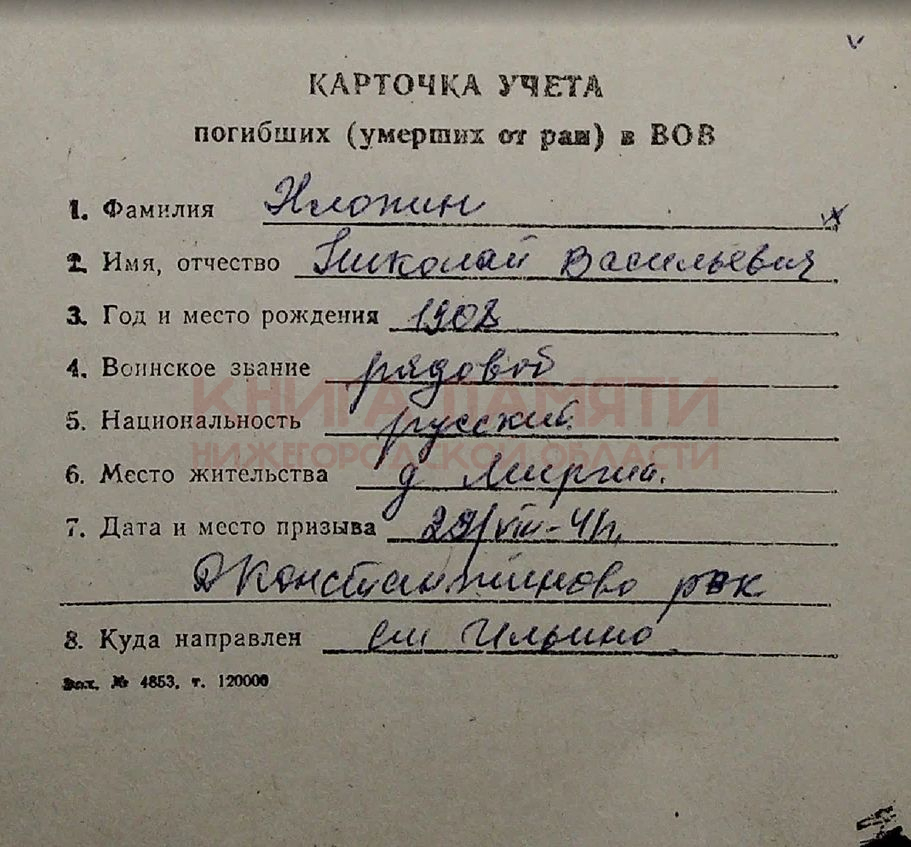 КАРТОЧКА УЧЕТА
погибших (умерших от ран) в ВОВ
1. Фамилия Хлопин
2. Имя, отчество Николай Васильевич
3. Год и место рождения 1908
4. Воинское звание рядовой
КНИГА ПАМЯТИ
5. Национальность русский
НИЖЕГОРОДСКОЙ ОБЛАСТИ
6. Место жительства д
7. Дата и место призыва 29/VIII-41г.
ДКонстантиново рвк
8. Куда направлен ст Ильино
Зак. № 4853, т. 120000